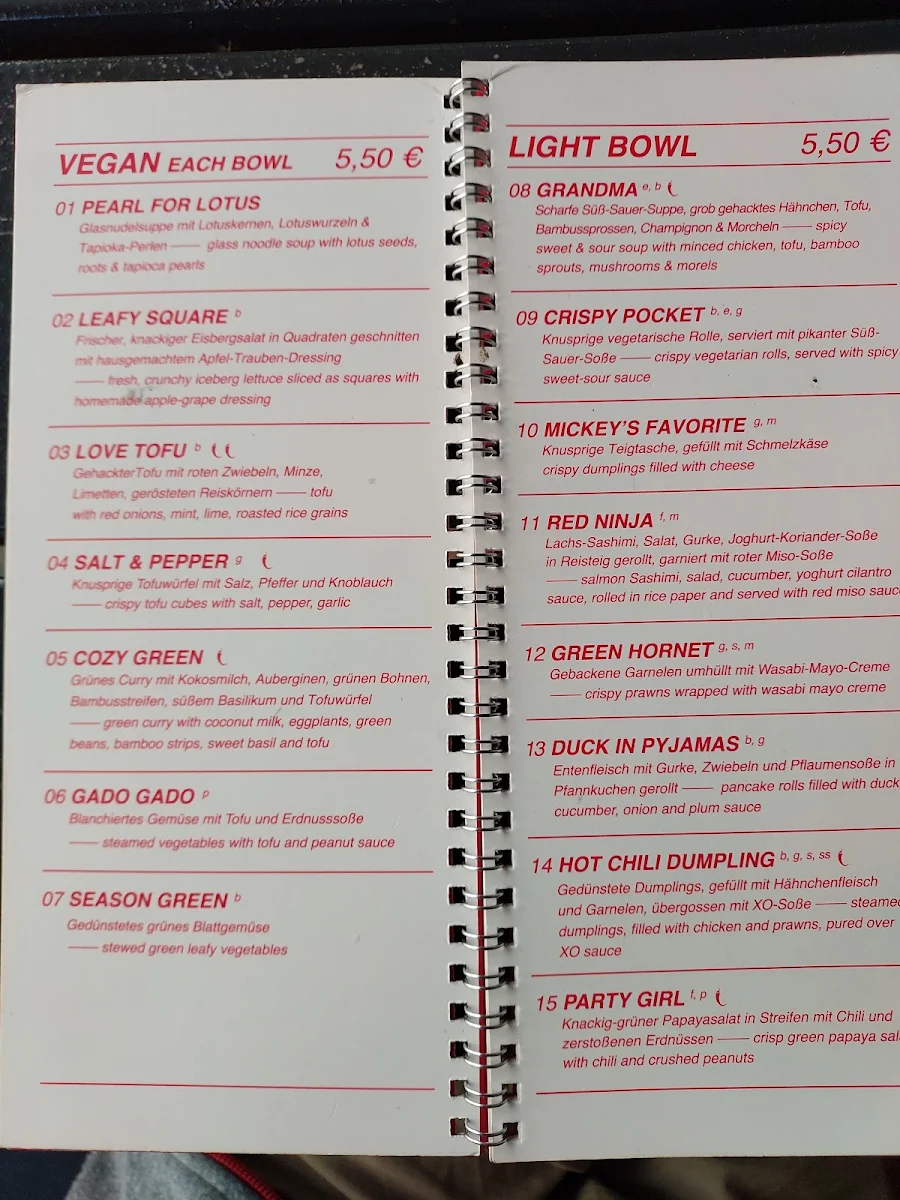 VEGAN EACH BOWL 5,50 €
01 PEARL FOR LOTUS
Glasnudelsuppe mit Lotuskernen, Lotuswurzeln &
Tapioka-Perlen —— glass noodle soup with lotus seeds,
roots & tapioca pearls
02 LEAFY SQUARE b
Frischer, knackiger Eisbergsalat in Quadraten geschnitten
mit hausgemachtem Apfel-Trauben-Dressing
—— fresh, crunchy iceberg lettuce sliced as squares with
homemade apple-grape dressing
03 LOVE TOFU b
GehackterTofu mit roten Zwiebeln, Minze,
Limetten, gerösteten Reiskörnern —— tofu
with red onions, mint, lime, roasted rice grains
04 SALT & PEPPER g
Knusprige Tofuwürfel mit Salz, Pfeffer und Knoblauch
—— crispy tofu cubes with salt, pepper, garlic
05 COZY GREEN
Grünes Curry mit Kokosmilch, Auberginen, grünen Bohnen,
Bambusstreifen, süßem Basilikum und Tofuwürfel
—— green curry with coconut milk, eggplants, green
beans, bamboo strips, sweet basil and tofu
06 GADO GADO p
Blanchiertes Gemüse mit Tofu und Erdnusssoße
—— steamed vegetables with tofu and peanut sauce
07 SEASON GREEN b
Gedünstetes grünes Blattgemüse
—— stewed green leafy vegetables
LIGHT BOWL 5,50 €
08 GRANDMA e, b
Scharfe Süß-Sauer-Suppe, grob gehacktes Hähnchen, Tofu,
Bambussprossen, Champignon & Morcheln —— spicy
sweet & sour soup with minced chicken, tofu, bamboo
sprouts, mushrooms & morels
09 CRISPY POCKET b, e, g
Knusprige vegetarische Rolle, serviert mit pikanter Süß-
Sauer-Soße —— crispy vegetarian rolls, served with spicy
sweet-sour sauce
10 MICKEY'S FAVORITE g, m
Knusprige Teigtasche, gefüllt mit Schmelzkäse
crispy dumplings filled with cheese
11 RED NINJA f, m
Lachs-Sashimi, Salat, Gurke, Joghurt-Koriander-Soße
in Reisteig gerollt, garniert mit roter Miso-Soße
—— salmon Sashimi, salad, cucumber, yoghurt cilantro
sauce, rolled in rice paper and served with red miso sauc
12 GREEN HORNET g, s, m
Gebackene Garnelen umhüllt mit Wasabi-Mayo-Creme
—— crispy prawns wrapped with wasabi mayo creme
13 DUCK IN PYJAMAS b, g
Entenfleisch mit Gurke, Zwiebeln und Pflaumensoße in
Pfannkuchen gerollt —— pancake rolls filled with duck
cucumber, onion and plum sauce
14 HOT CHILI DUMPLING b, g, s, ss
Gedünstete Dumplings, gefüllt mit Hähnchenfleisch
und Garnelen, übergossen mit XO-Soße —— steamed
dumplings, filled with chicken and prawns, pured over
XO sauce
15 PARTY GIRL f, p
Knackig-grüner Papayasalat in Streifen mit Chili und
zerstoßenen Erdnüssen —— crisp green papaya sal
with chili and crushed peanuts